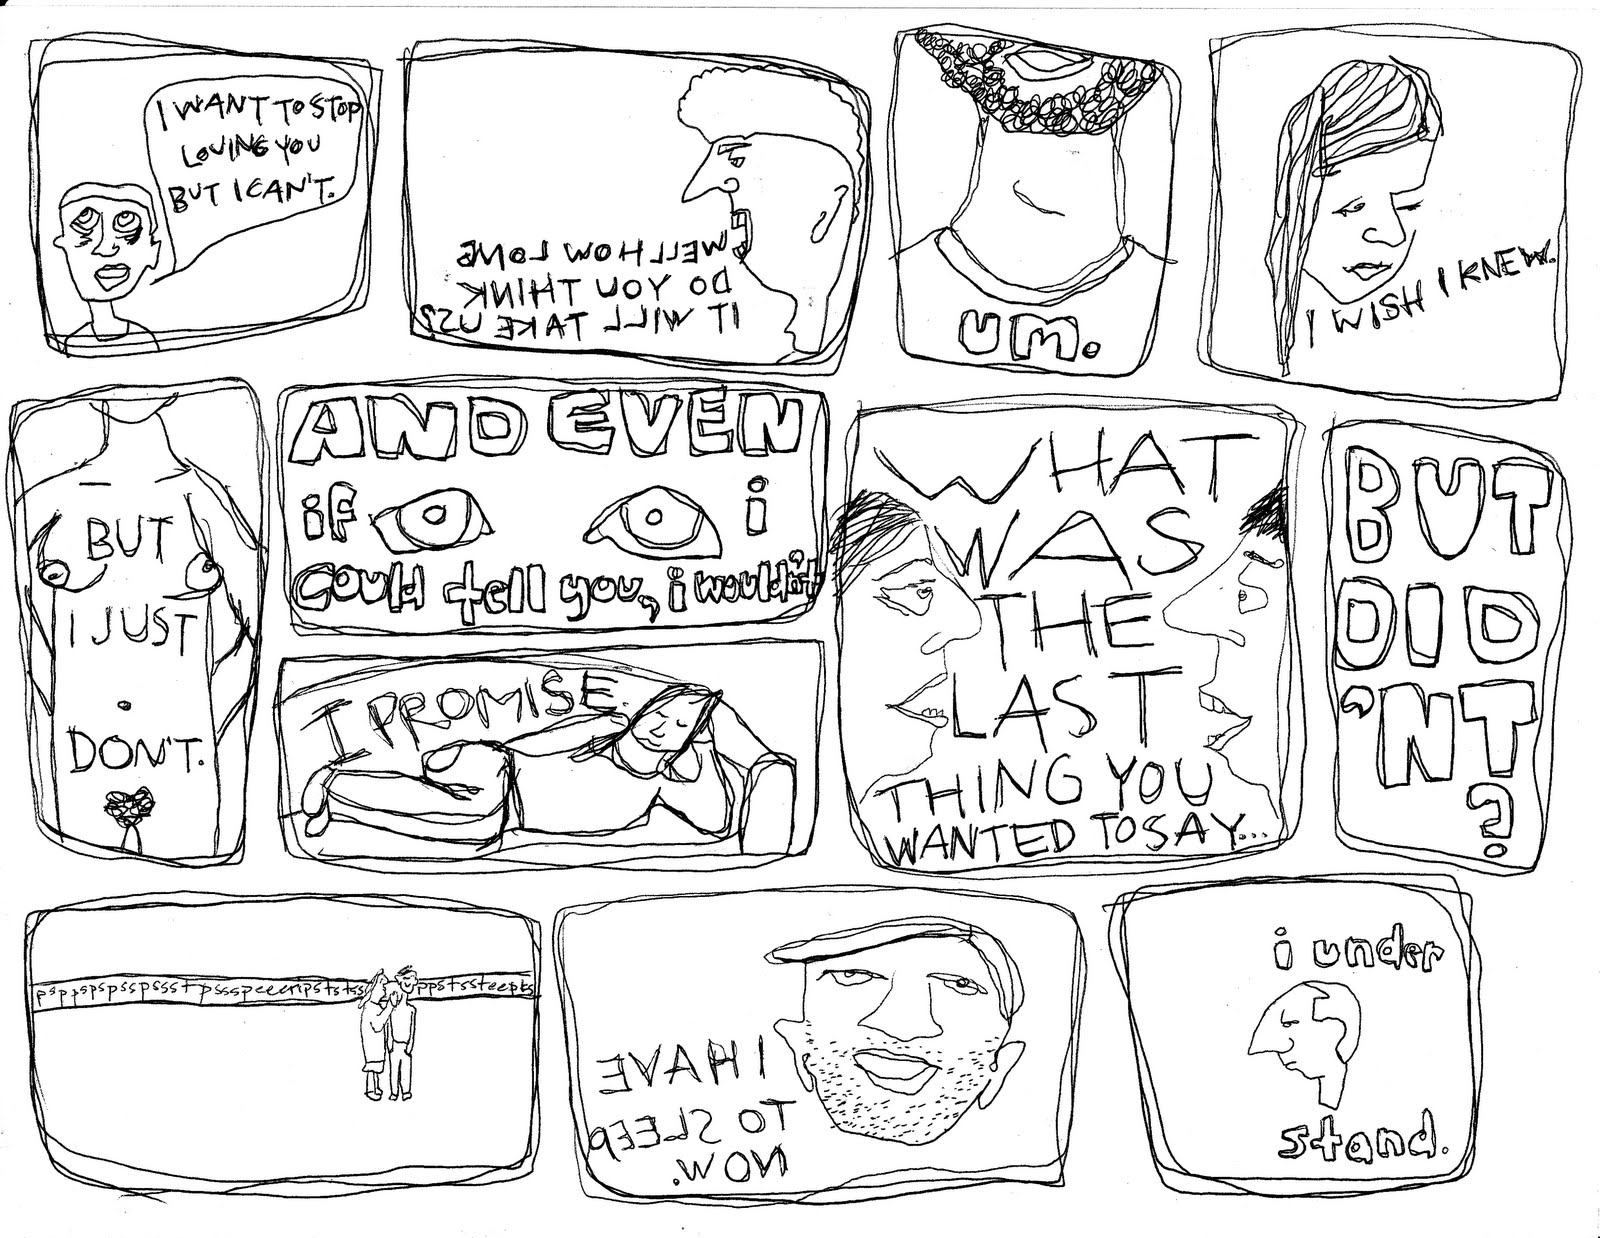 I WANT TO STOP
LOVING YOU
BUT I CAN'T.
WELL HOW LONG
DO YOU THINK
IT WILL TAKE US?
um.
I WISH I KNEW.
BUT
I JUST
DON'T.
AND EVEN
if i
could tell you, i wouldn't
I PROMISE.
WHAT
WAS
THE
LAST
THING YOU
WANTED TO SAY...
BUT
DID
'NT
?
I HAVE
TO SLEEP
NOW.
i under
stand.